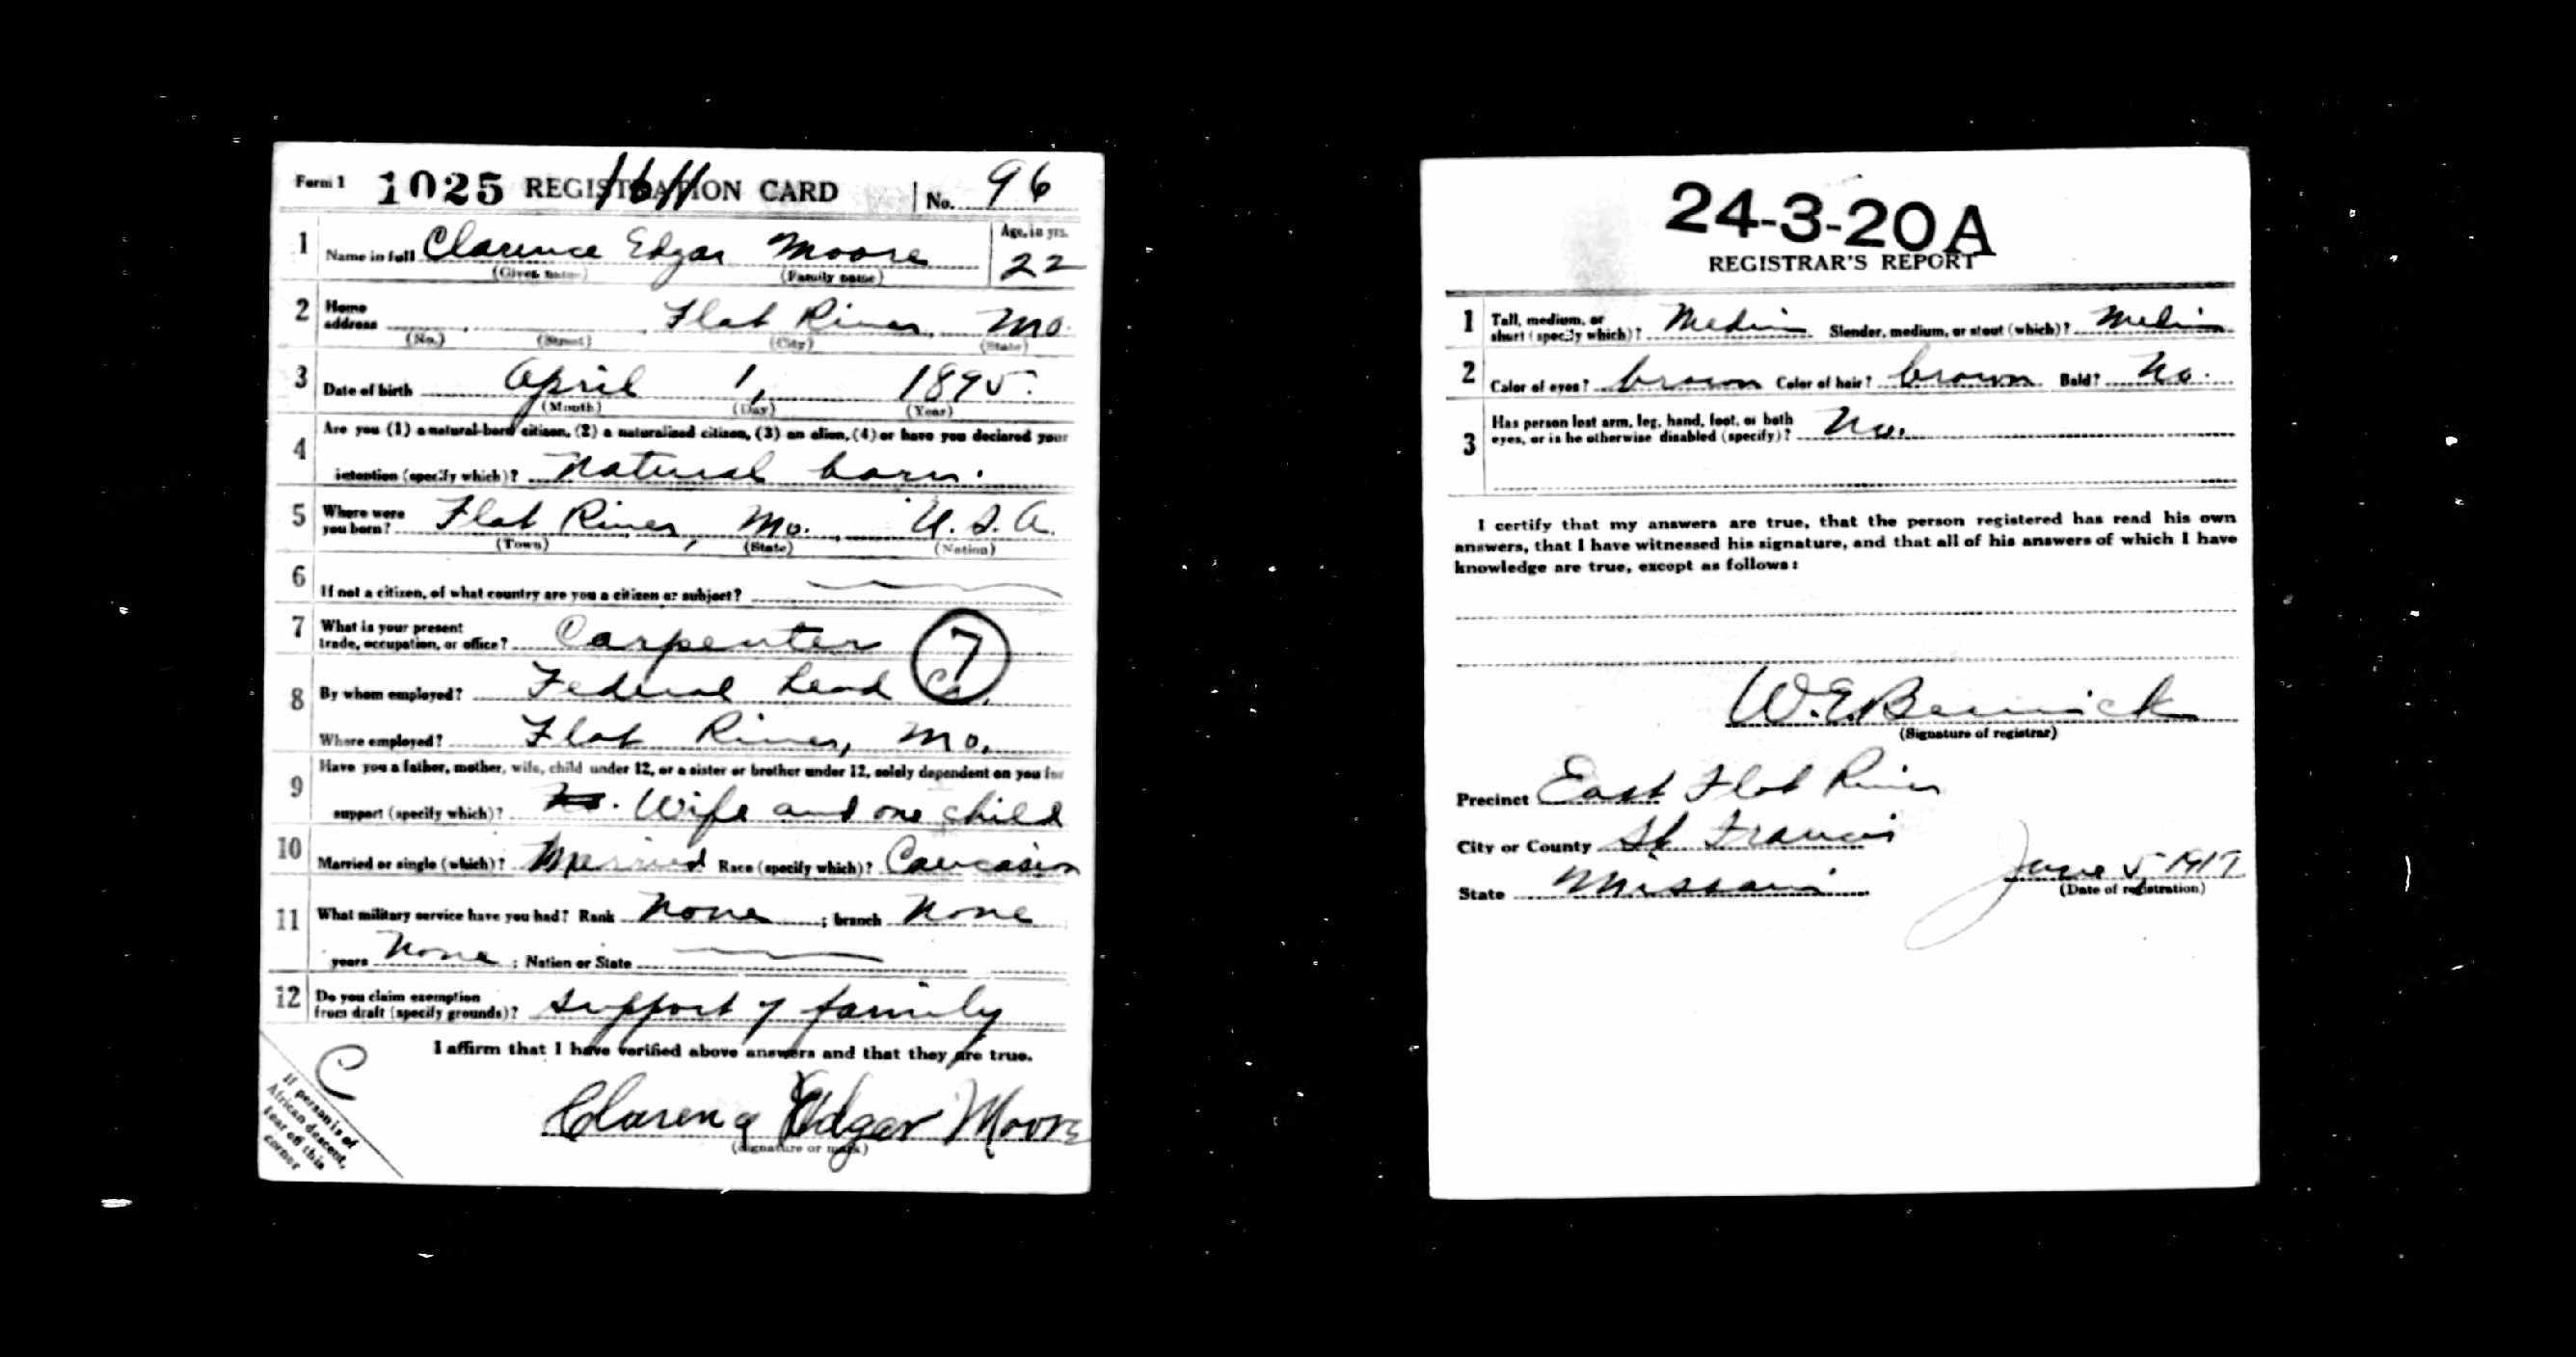 Form 1 1025 REGISTRATION CARD 1611 No. 96
1 Name in full Clarence Edgar Moore Age, in yrs. 22
(Given name) (Family name)
2 Home address Flat River, Mo.
(No.) (Street) (City) (State)
3 Date of birth April 1, 1895.
(Month) (Day) (Year)
4 Are you (1) a natural-born citizen, (2) a naturalized citizen, (3) an alien, (4) or have you declared your
intention (specify which)? Natural born.
5 Where were you born? Flat River, Mo. U.S.A.
(Town) (State) (Nation)
6 If not a citizen, of what country are you a citizen or subject?
7 What is your present trade, occupation, or office? Carpenter 7
8 By whom employed? Federal Lead Co.
Where employed? Flat River, Mo.
9 Have you a father, mother, wife, child under 12, or a sister or brother under 12, solely dependent on you for
support (specify which)? No. Wife and one child
10 Married or single (which)? Married Race (specify which)? Caucasion
11 What military service have you had? Rank None ; branch None
years None ; Nation or State
12 Do you claim exemption from draft (specify grounds)? Support of family
I affirm that I have verified above answers and that they are true.
C
Clarence Edgar Moore
(Signature or mark)
If person is of
African descent,
tear off this
corner
24-3-20 A
REGISTRAR'S REPORT
1 Tall, medium, or short (specify which)? Medium Slender, medium, or stout (which)? Medium
2 Color of eyes? brown Color of hair? brown Bald? No.
3 Has person lost arm, leg, hand, foot, or both
eyes, or is he otherwise disabled (specify)? No.
I certify that my answers are true, that the person registered has read his own
answers, that I have witnessed his signature, and that all of his answers of which I have
knowledge are true, except as follows:
W.E.
(Signature of registrar)
Precinct East Flat River
City or County St Francis
State Missouri June 5, 1917
(Date of registration)